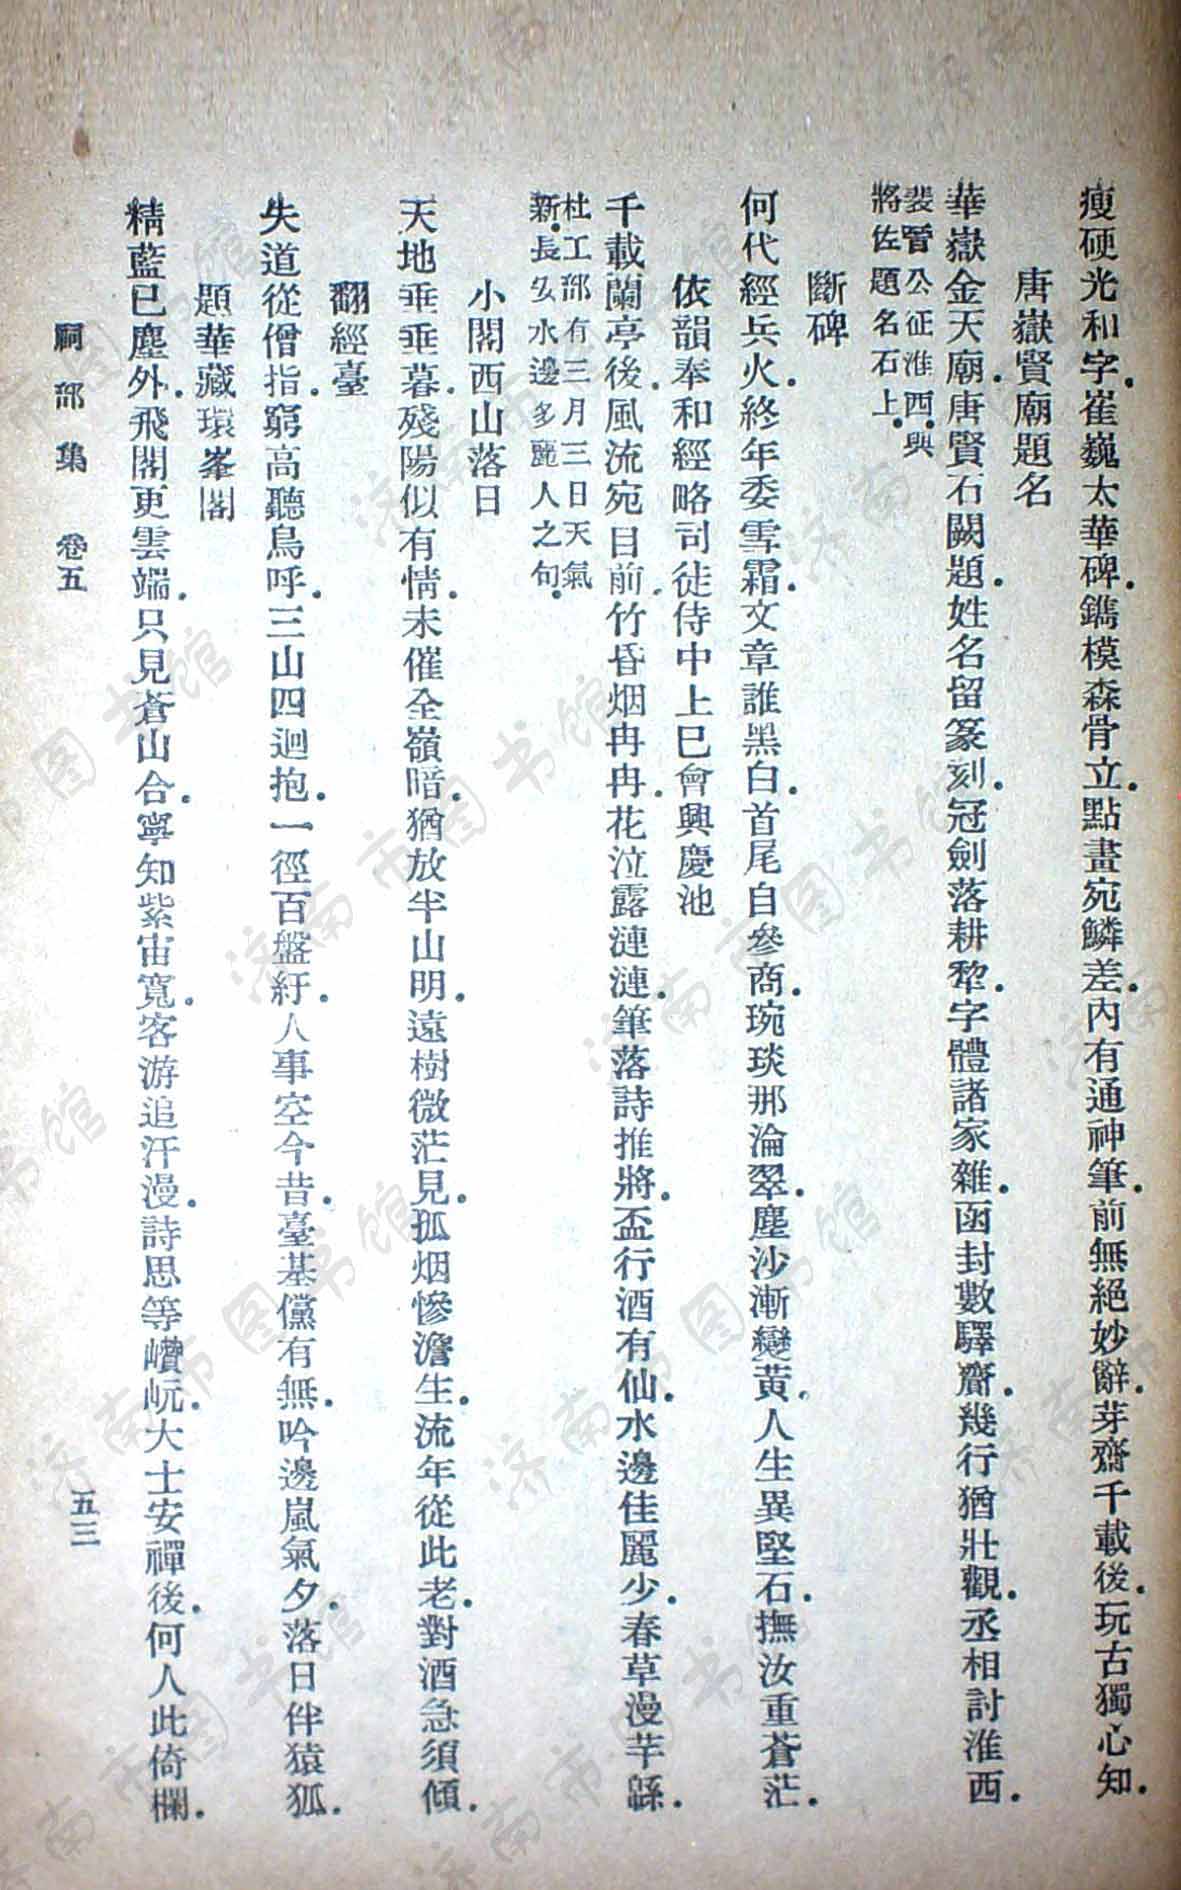 瘦硬光和字.崔巍太華碑.鐫模森骨立.點畫宛鱗差.內有通神筆.前無絕妙辭.芽齋千載後.玩古獨心知.
唐嶽賢廟題名
華嶽金天廟.唐賢石闕題.姓名留篆刻.冠劍落耕犂.字體諸家雜.函封數驛齎.幾行猶壯觀.丞相討淮西.
裴晉公征淮西.與
將佐題名石上.
斷碑
何代經兵火.終年委雪霜.文章誰黑白.首尾自參商.琬琰那淪翠.塵沙漸變黃.人生異堅石.撫汝重蒼茫.
依韻奉和經略司徒侍中上巳會興慶池
千載蘭亭後.風流宛目前.竹昏烟冉冉.花泣露漣漣.筆落詩推將.盃行酒有仙.水邊佳麗少.春草漫芊緜.
杜工部有三月三日天氣
新.長安水邊多麗人之句.
小閣西山落日
天地垂垂暮.殘陽似有情.未催全嶺暗.猶放半山明.遠樹微茫見.孤烟慘澹生.流年從此老.對酒急須傾.
翻經臺
失道從僧指.窮高聽鳥呼.三山四迴抱.一徑百盤紆.人事空今昔.臺基儻有無.吟邊嵐氣夕.落日伴猿狐.
題華藏環峯閣
精藍已塵外.飛閣更雲端.只見蒼山合.寧知紫宙寬.客游追汗漫.詩思等巑岏.大士安禪後.何人此倚欄.
祠部集 卷五 五三
济南市图书馆